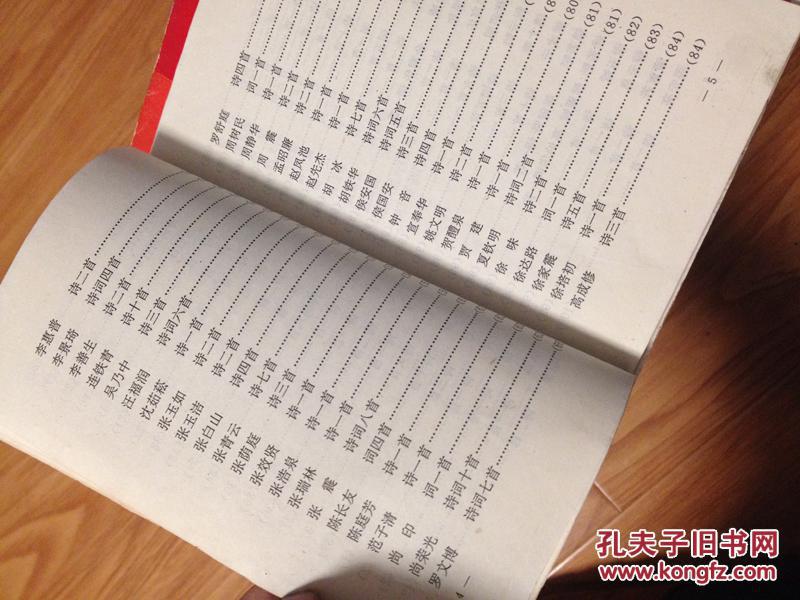 李惠普 诗二首
李景琦 诗词四首
李善坐 诗二首
连铁青 诗一首
吴乃中 诗三首
汪福润 诗词六首
沈茹菘 诗一首
张玉如 诗一首
张玉洁 诗二首
张白山 诗二首
张青云 诗四首
张荫庭 诗七首
张效贤 诗三首
张浩泉 诗一首
张瑞林 诗一首
张震 诗词八首
陈长友 词四首
陈庭芳 诗一首
范子清 诗一首
尚印 词一首
尚荣光 诗词十首
罗文博 诗词七首
4 —
罗舒庭 诗四首
周树民 词一首
周静华 诗一首
周震 诗二首
孟昭廉 诗二首
赵凤池 诗一首
赵先杰 诗一首
胡冰 诗七首
胡铁华 诗词六首
侯安国 诗词五首
侯国安 诗三首
钟音 诗四首
宣奉华 诗一首
姚文明 诗二首
贺醴泉 诗一首
贾建 诗一首
夏钦明 诗词二首 (81)
徐味 诗一首 (81)
徐达路 词一首 (82)
徐家震 诗五首 (83)
徐培初 诗一首 (84)
高成修 诗三首 (84)
— 5 —
孔夫子旧书网
www.kongfz.com